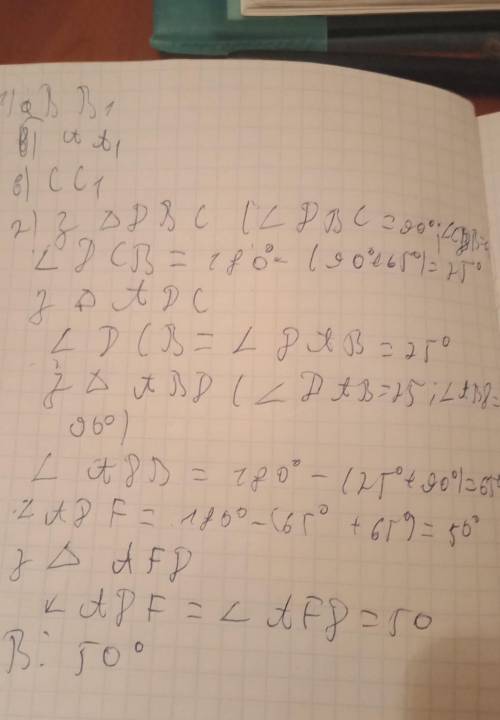 1) а B B₁
б) A A₁
в) C C₁
2) З △ DBC (∠ DBC = 90°; ∠CDB=
∠ DCB = 180° - (90°+65°) = 25°
З △ ADC
∠ DCB = ∠ DAB = 25°
З △ ABD (∠ DAB = 25; ∠ABD=
90°)
∠ ADB = 180° - (25° + 90°) = 65°
∠ ADF = 180° - (65° + 65°) = 50°
З △ AFD
∠ ADF = ∠ AFD = 50
В: 50°